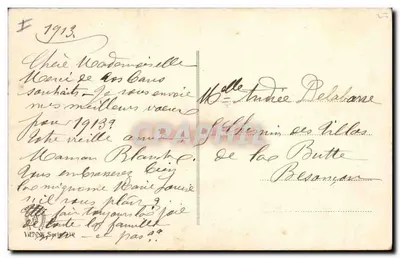 I 1913
Chère Mademoiselle
Merci de vos bons
souhaits. Je vous envoie
mes meilleurs voeux
pour 1913
Votre vieille amie
Maman Blanche
la mignonne Marie Louise
s'il vous plait ?
Elle fait toujours la joie
de toute la famille
et pas
Melle Andrée Delabarre
5 Chemin des Villas
de la Butte
Besançon